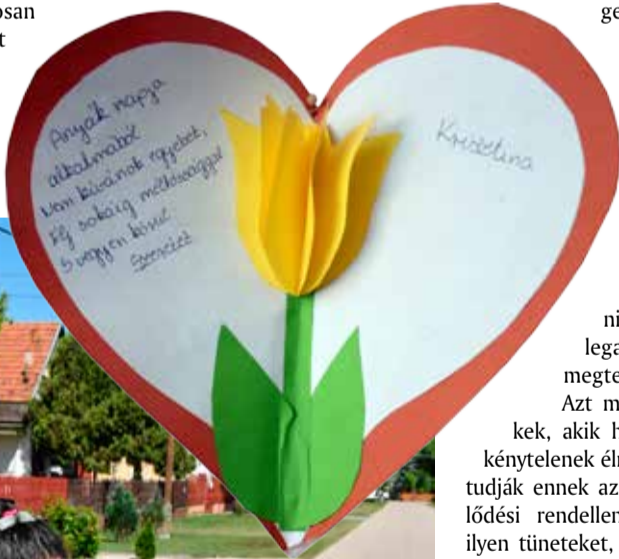 osan
t
ge
Anyák napja
alkalmából
Nem kívánok egyebet,
Élj sokáig méltósággal
S vegyen körül
szeretet
Krisztina
ni
lega
megte
Azt m
kek, akik h
kénytelenek éln
tudják ennek az
lődési rendellen
ilyen tüneteket,